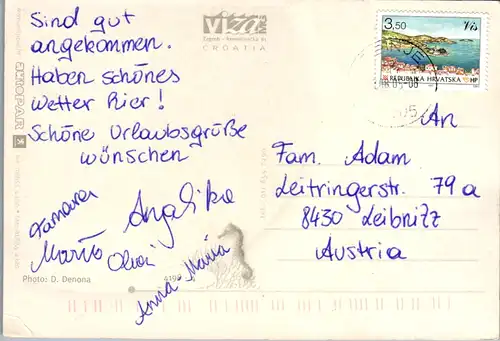 Sind gut
angekommen.
Haben schönes
Wetter hier!
Schöne Urlaubsgrüße
wünschen
Tamara
Mario
Angelika
Anna-Maria
Photo: D. Denona
VIZA
CROATIA
3,50
REPUBLIKA HRVATSKA
HP
An
Fam. Adam
Leitringerstr. 79a
8430 Leibnitz
Austria